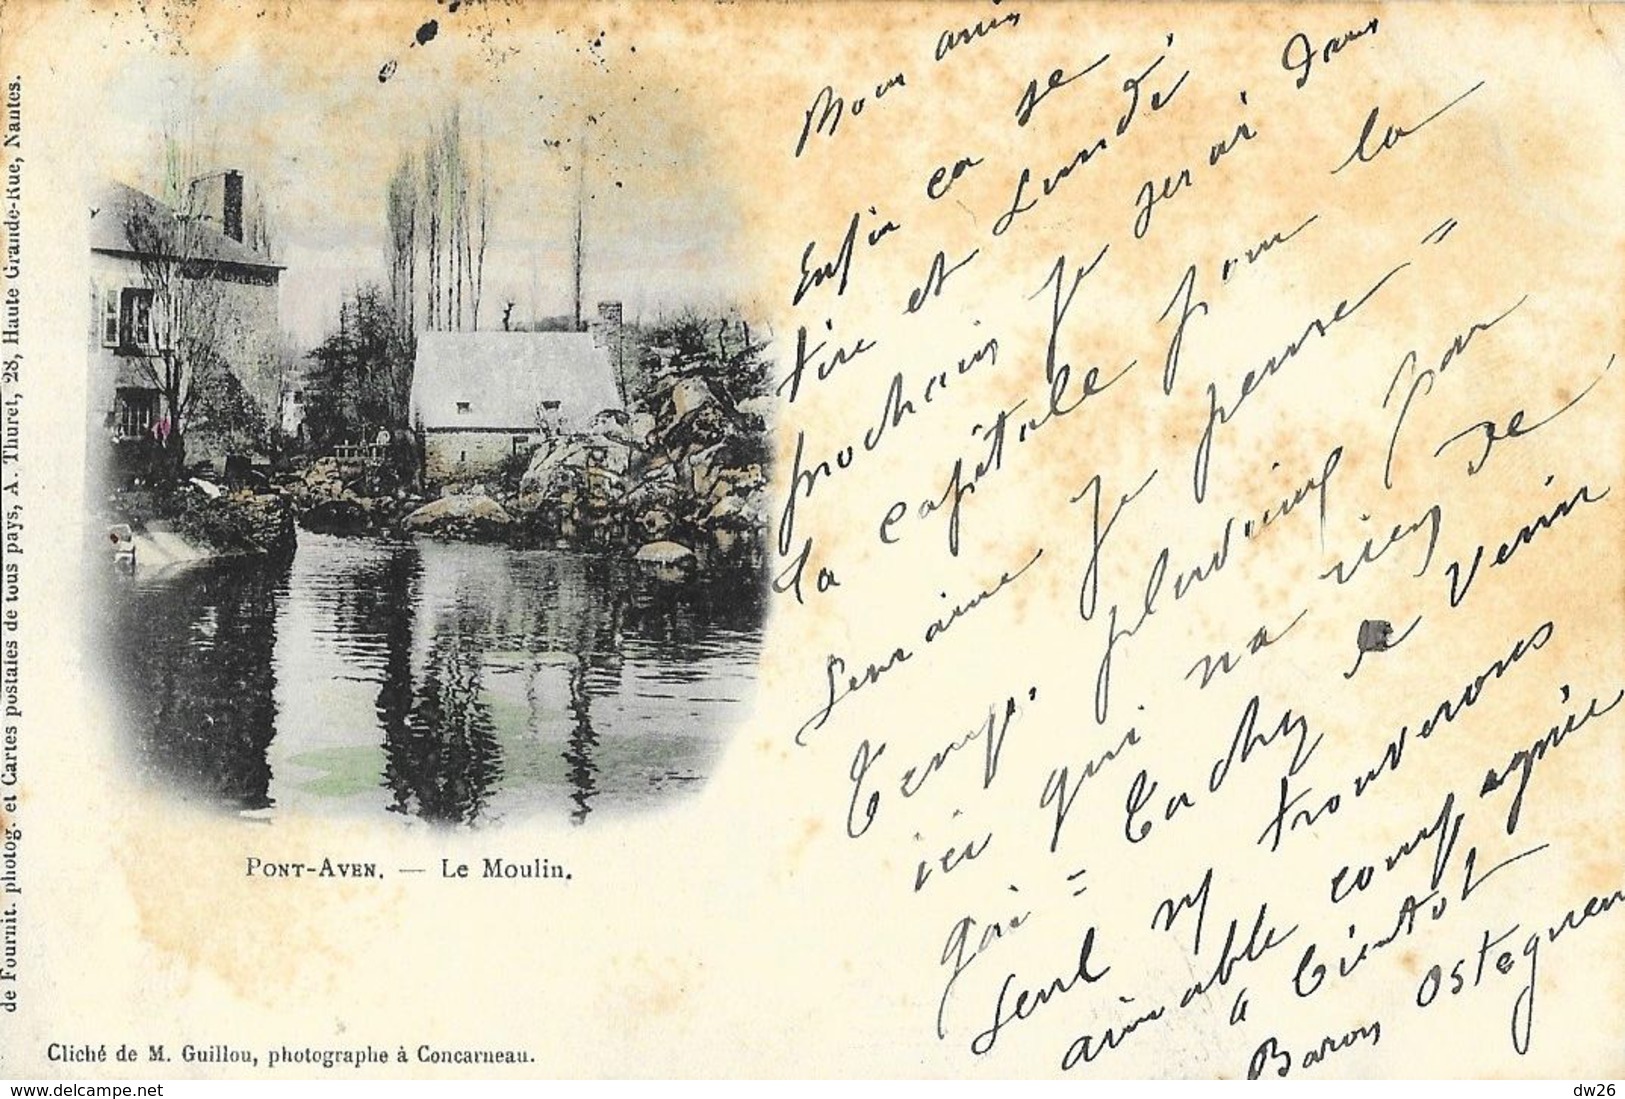 de Fournit. photog. et Cartes postales de tous pays, A. Thuret, 28, Haute Grande-Rue, Nantes.
Mon ami
Enfin ca se
tire et Lundi
prochain Je serai dans
la capitale pour la
Semaine Je pense =
Temps pluvieux par
ici qui na rien de
gai = Tachez de venir
Seul ns trouverons
aimable compagnie
a Bientot
Baron Ostegren
PONT-AVEN. — Le Moulin.
Cliché de M. Guillou, photographe à Concarneau.
dw26